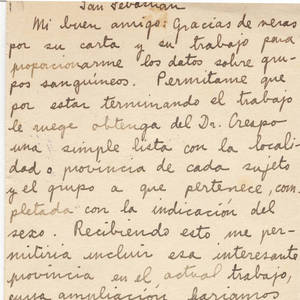 San Sebastián
Mi buen amigo: Gracias de veras
por su carta y su trabajo para
proporcionarme los datos sobre gru-
pos sanguíneos. Permítame que
por estar terminando el trabajo
le ruege obtenga del Dr. Crespo
una simple lista con la locali-
dad o provincia de cada sujeto
y el grupo a que pertenece, com-
pletada con la indicación del
sexo. Recibiendo esto me per-
mitiria incluir esa interesante
provincia en el actual trabajo,
cuya ampliación haríamos